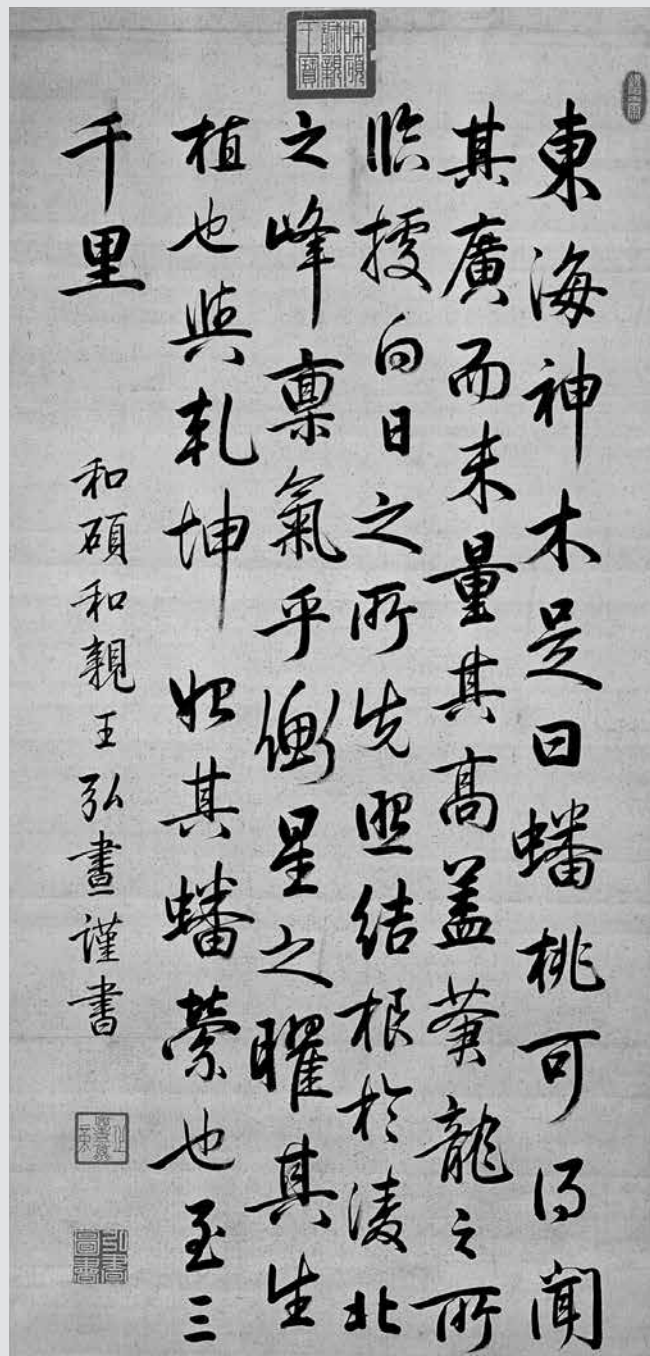 東海神木是曰蟠桃可得聞
其廣而未量其高蓋黃龍之所
臨據白日之所先照結根於凌北
之峰稟氣乎衡星之曜其生
植也與乾坤始其蟠縈也至三
千里
和碩和親王弘晝謹書
弘晝圖書